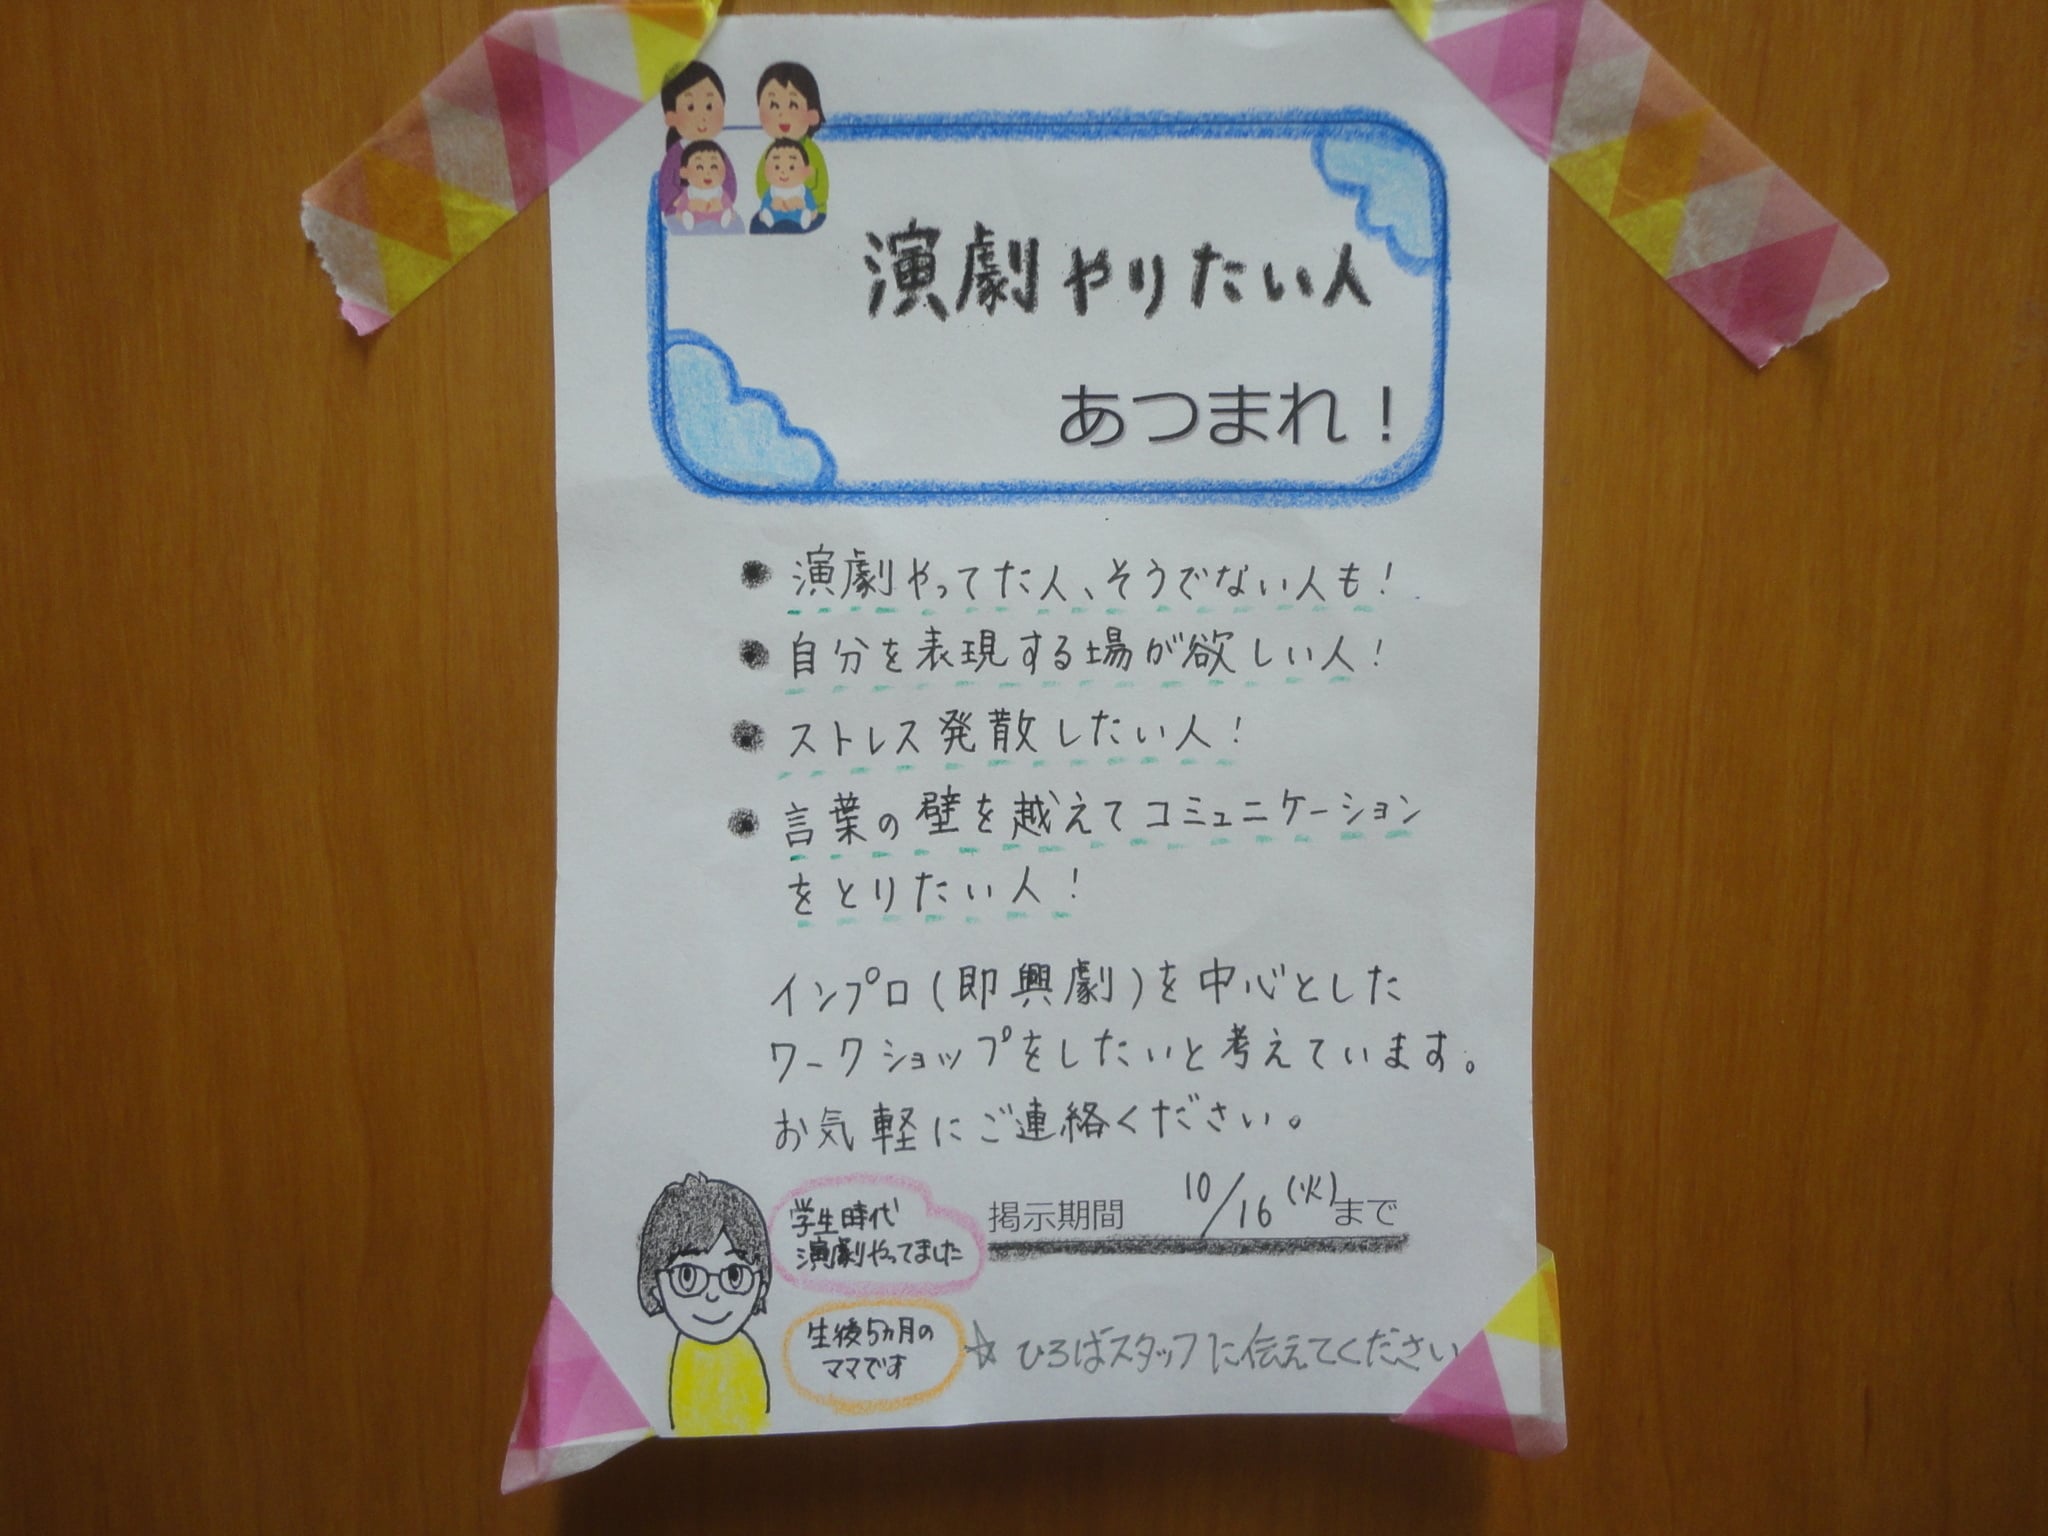 演劇やりたい人
あつまれ！
● 演劇やってた人、そうでない人も！
● 自分を表現する場が欲しい人！
● ストレス発散したい人！
● 言葉の壁を越えてコミュニケーション
をとりたい人！
インプロ(即興劇)を中心とした
ワークショップをしたいと考えています。
お気軽にご連絡ください。
学生時代
演劇やってました
掲示期間 10/16(火)まで
生後5ヵ月の
ママです
☆ひろばスタッフに伝えてください